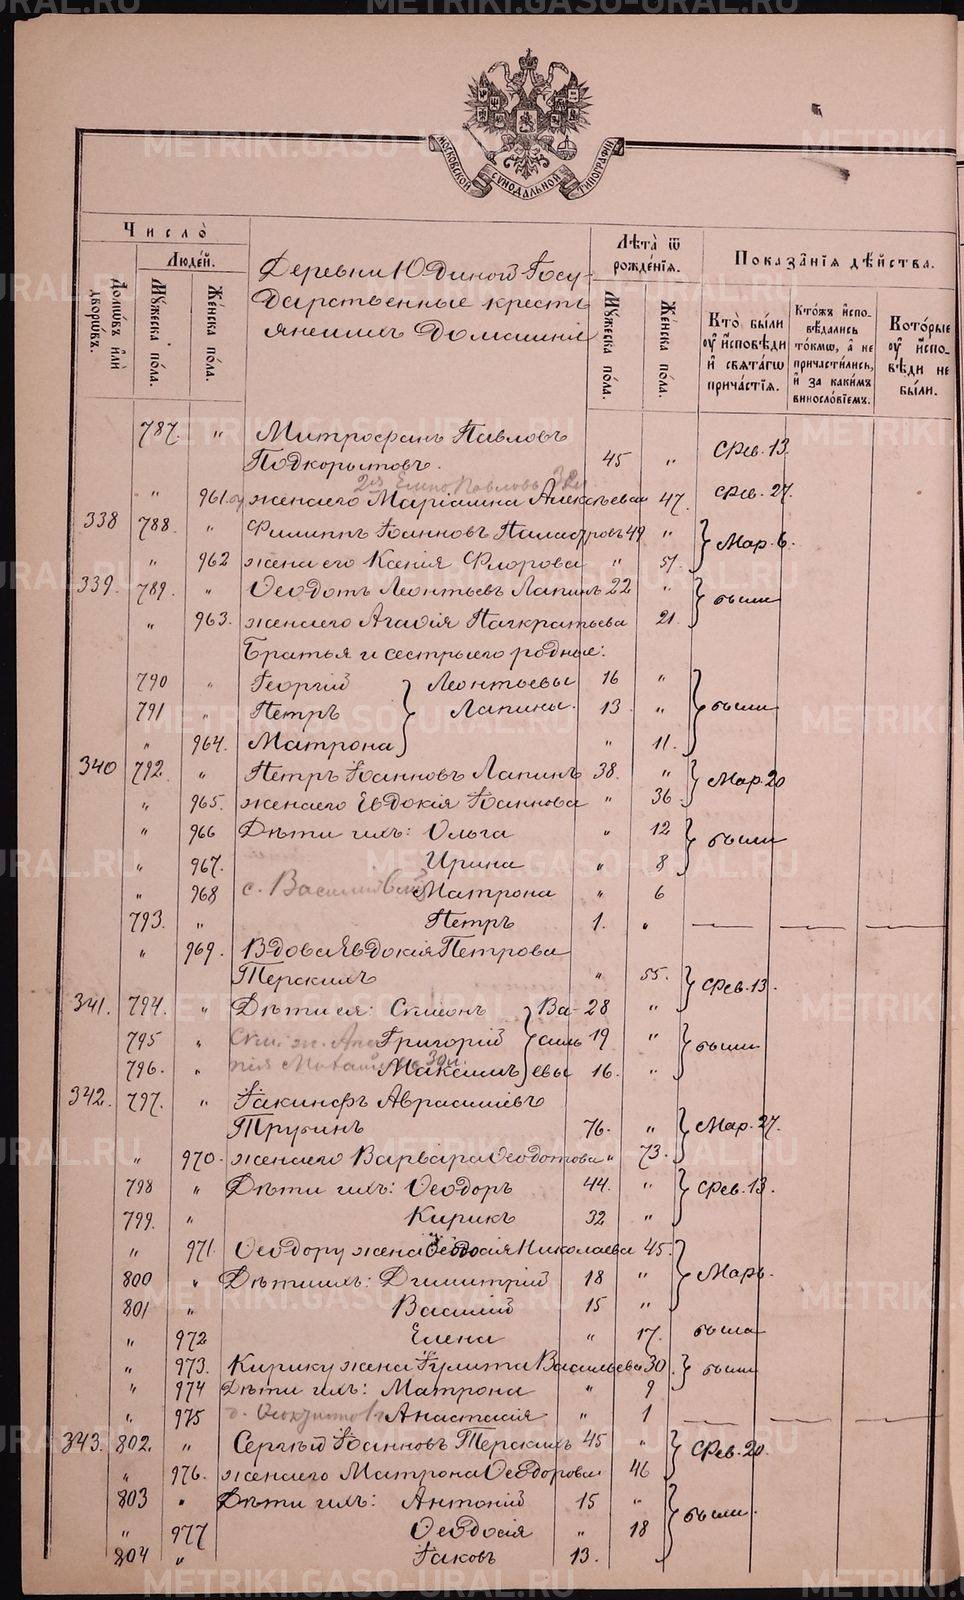 МОСКОВСКОЙ СѴНОДАЛЬНОЙ ТИПОГРАФІИ
Число̀
Людей.
Домѡвъ и҆лѝ дворѡвъ.
Мꙋжеска по́ла.
Же́нска по́ла.
Деревни Юдиной Госу-
дарственные кресть
яне и ихъ Домашніе
Лѣта̀ ѿ рожде́нїѧ.
Мꙋжеска по́ла.
Же́нска по́ла.
Показа̑нїѧ дѣ́йства.
Кто̀ бы́ли оу҆ и҆сповѣди и҆ свѧта́гѡ причастїѧ.
Кто́жъ и҆спо-вѣдались то́кмѡ, а҆ не причасти́лись, и҆ за каки́мъ винословїемъ.
Кото́рые оу҆ и҆спо-вѣди не бы́ли.
787. " Митрофанъ Павловъ
Подкорытовъ. 45 " Фев. 13.
" 961. жена его Маріамна Алексѣева 47. Фев. 27.
338 788. " Филиппъ Іоанновъ 49 " Мар. 6.
" 962 жена его Ксенія Флорова " 57.
339. 789. " Ѳеодотъ Леонтьевъ Лапинъ 22 " были
" 963. жена его Агафія Панкратьева 21.
Братья и сестры его родные:
790 " Георгій Леонтьевы 16 "
791 " Петръ Лапины. 13. " были
" 964. Матрона " 11.
340 792. " Петръ Іоанновъ Лапинъ 38. " Мар. 20
" 965. жена его Евдокія Іоаннова " 36
" 966 Дѣти ихъ: Ольга " 12 были
" 967. Ирина " 8
" 968 с. Матрона " 6
793. " Петръ 1. "
" 969. Вдова Евдокія Петрова
Терскихъ " 55. Фев. 13.
341. 794. " Дѣти ея: Симеонъ Ва- 28 "
795 " Григорій силь 19 " были
796. " Максимъ евы 16. "
342. 797. " Іакинфъ Аврамовъ
Трубинъ 76. " Мар. 27.
" 970. жена его Варвара Ѳеодотова " 73.
798 " Дѣти ихъ: Ѳеодоръ 44. " Фев. 13.
799. " Кирикъ 32 "
" 971. Ѳеодору жена Ѳеодосія Николаева 45.
800 " Дѣти ихъ: Димитрій 18 " Мар. 6.
801 " Василій 15 "
" 972 Елена " 17. была
" 973. Кирику жена Іулита Васильева 30. были
" 974 Дѣти ихъ: Матрона " 9
" 975 Анастасія " 1
343. 802. " Сергѣй Іоанновъ Терскихъ 45 " Фев. 20.
" 976. жена его Матрона Ѳеодорова 46
803 " Дѣти ихъ: Антоній 15 "
" 977 Ѳеодосія " 18 были.
804 " Іаковъ 13.
METRIKI.GASO-URAL.RU